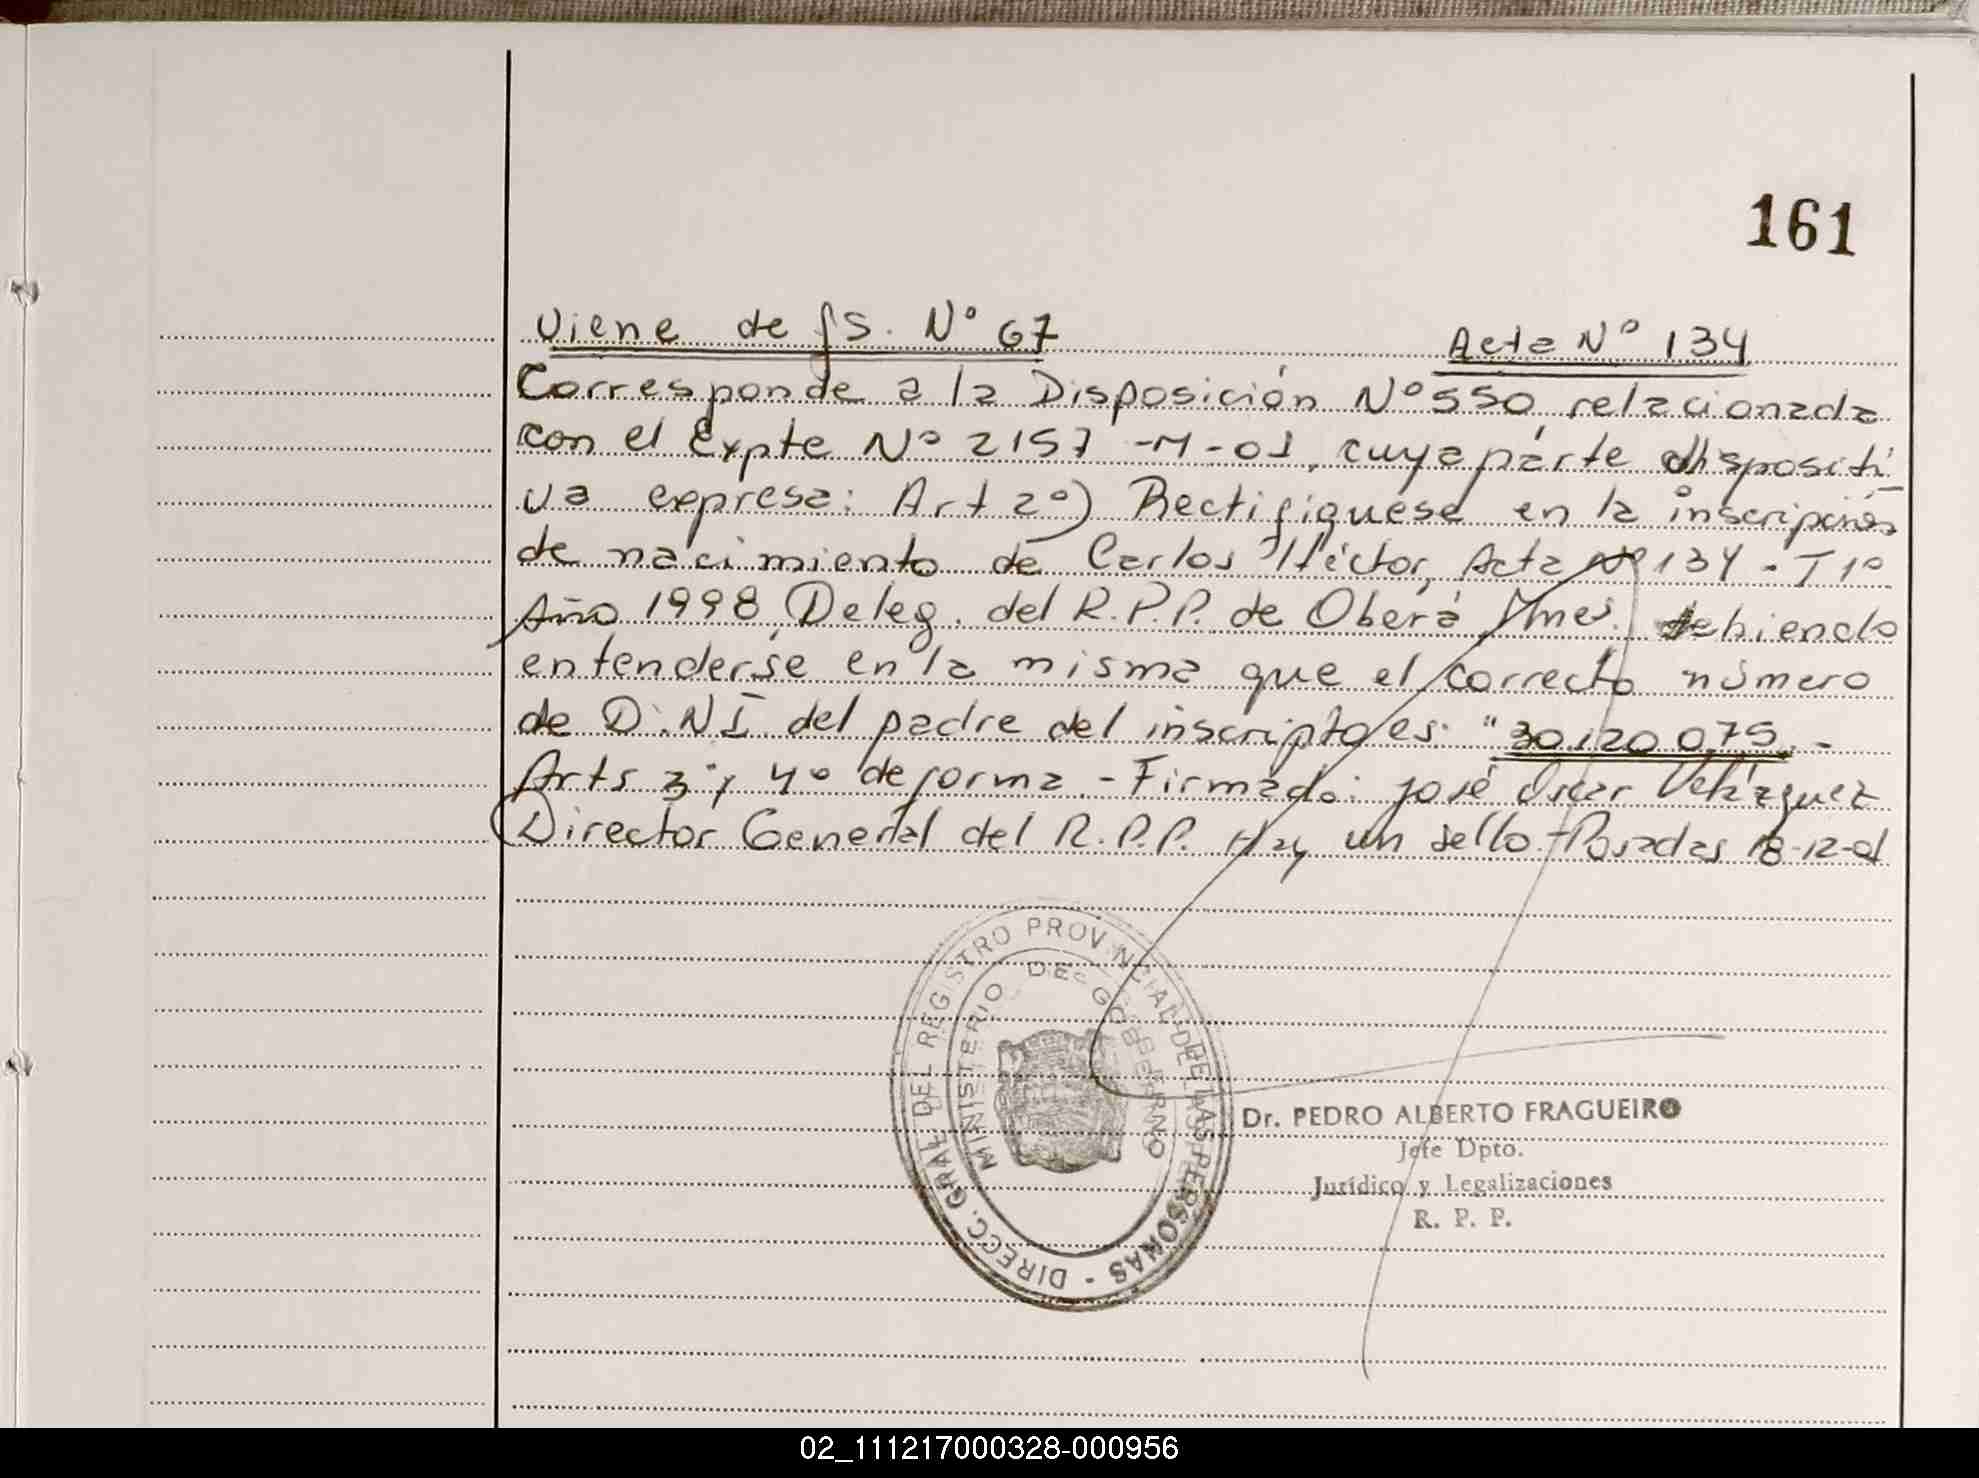 161
Viene de fs. Nº 67 Acta Nº 134
Corresponde a la Disposición Nº 550 relacionada
con el Expte Nº 2157 -M-01, cuya parte dispositi
va expresa: Art 2º) Rectifiquese en la inscripción
de nacimiento de Carlos Héctor, Acta Nº 134 - T 1º
Año 1998, Deleg. del R.P.P. de Oberá Mnes. debiendo
entenderse en la misma que el correcto número
de D.N.I. del padre del inscripto es: "30.120.075.-
Arts 3º y 4º de forma.- Firmado: José Oscar Velázquez
Director General del R.P.P. Hay un sello - Posadas 18-12-01
DIRECC. GRAL. DEL REGISTRO PROVINCIAL DE LAS PERSONAS -
MINISTERIO DE GOBIERNO
Dr. PEDRO ALBERTO FRAGUEIRO
Jefe Dpto.
Jurídico y Legalizaciones
R. P. P.
02_111217000328-000956